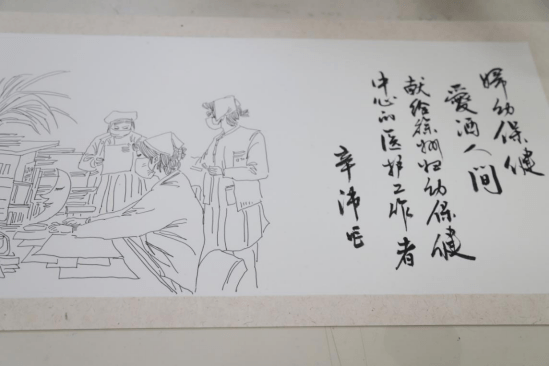 婦幼保健
愛洒人间
献给徐州妇幼保健
中心的医护工作者
辛沛